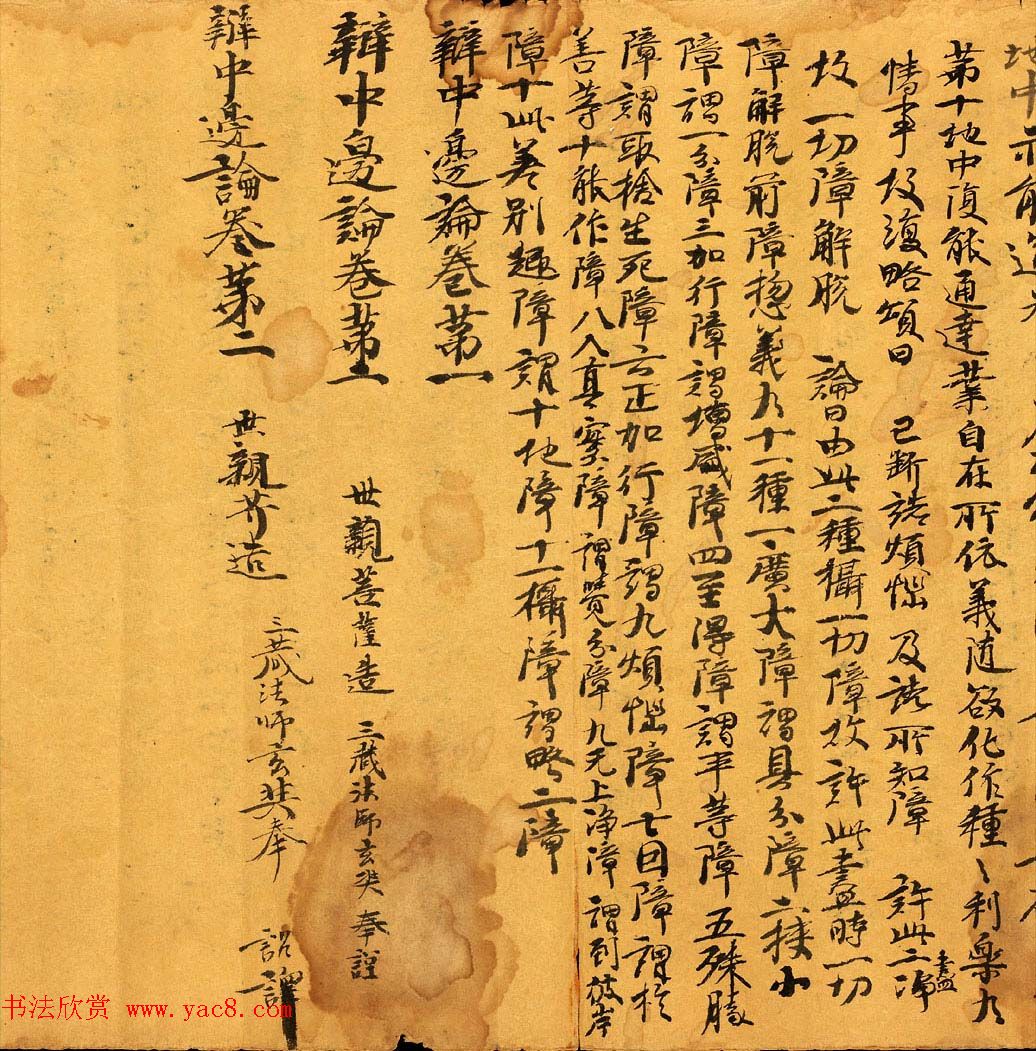 地中亦能
第十地中復能通達業自在所依義随欲化作種〻利樂九
情事故復略頌曰　已断諸煩惱　及諸所知障　許此二净盡
故一切障解脱　論曰由此二種攝一切障故許此盡時一切
障解脱前障揔義九十一種一廣大障謂具分障二狹小
障謂一分障三加行障謂增盛障四至得障謂平等障五殊勝
障謂取捨生死障六正加行障謂九煩惱障七因障謂於
善等十能作障八入真實障謂覺分障九无上净障謂到彼岸
障十此差别趣障謂十地障十一攝障謂略二障
辯中邊論卷第一
辯中邊論卷第二
世親菩薩造　三藏法師玄奘奉詔
辯中邊論卷第二
世親菩造
三藏法師玄奘奉
詔譯
书法欣赏 www.yac8.com